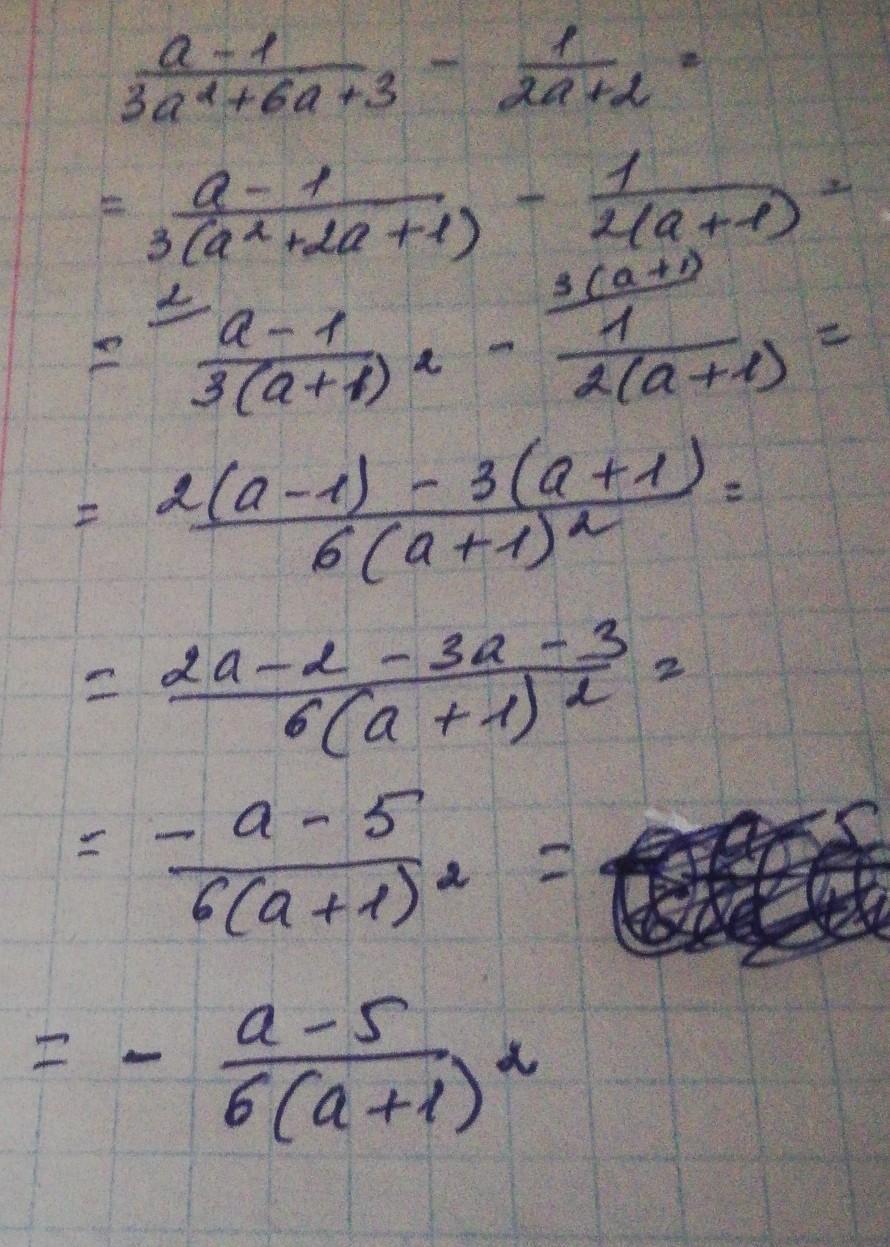 a - 1 / 3a² + 6a + 3 - 1 / 2a + 2 =
= a - 1 / 3(a² + 2a + 1) - 1 / 2(a + 1) =
= 2 a - 1 / 3(a + 1)² - 3(a + 1) 1 / 2(a + 1) =
= 2(a - 1) - 3(a + 1) / 6(a + 1)² =
= 2a - 2 - 3a - 3 / 6(a + 1)² =
= - a - 5 / 6(a + 1)² =
= - a - 5 / 6(a + 1)²